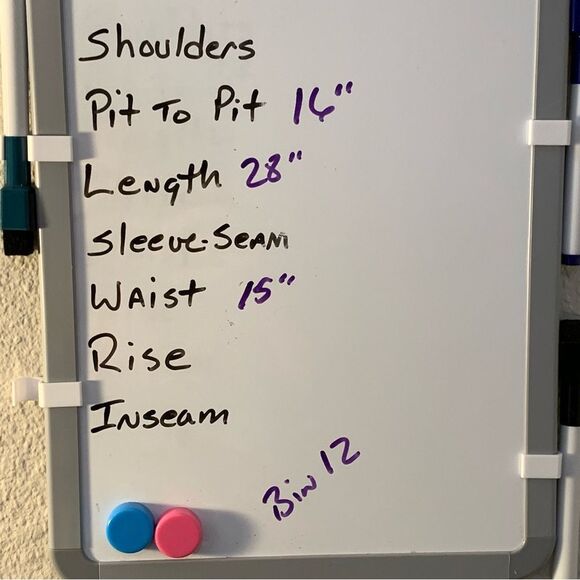 Shoulders
Pit To Pit 16"
Length 28"
Sleeve-Seam
Waist 15"
Rise
Inseam
Bin 12